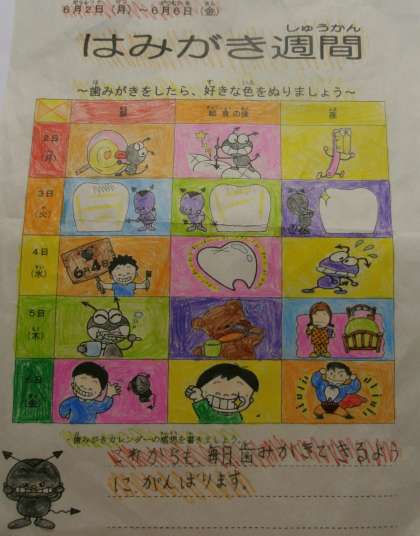 6月2日（月）～6月6日（金）
はみがき週間
しゅうかん
～歯みがきをしたら、好きな色をぬりましょう～
朝 給食の後 夜
2日
（月）
3日
（火）
4日
（水）
6月4日
5日
（木）
6日
（金）
歯みがきカレンダーの感想を書きましょう
これからも毎日歯みがきできるよう
にがんばります。